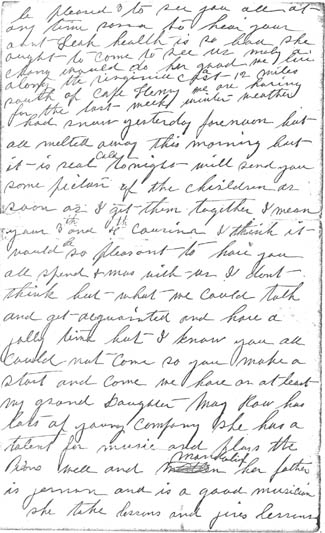 be pleased to see you all at
any time sorra to hear your
aunt Leah health is so bad she
ought to come to see us maby
chang would do her good we live
along the virginia Cost 12 miles
south of Cape Henry we are having
for the last week winter weather
had snow yesterday forenoon but
all melted away this morning but
it is real cold tonight will send you
some picture of the children as
soon as I get them together I mean
your 3th and 4th cousins I think it
would be so pleasant to have you
all spend Xmas with us I dont
think but what we could talk
and get acquainted and have a
jolly time but I know you all
could not come so you make a
start and come we have on at least
my grand Daughter May Row has
lots of young company she has a
talent for music and plays the
Piano well and mandolin her father
is german and is a good musician
she take lessons and gives lessons